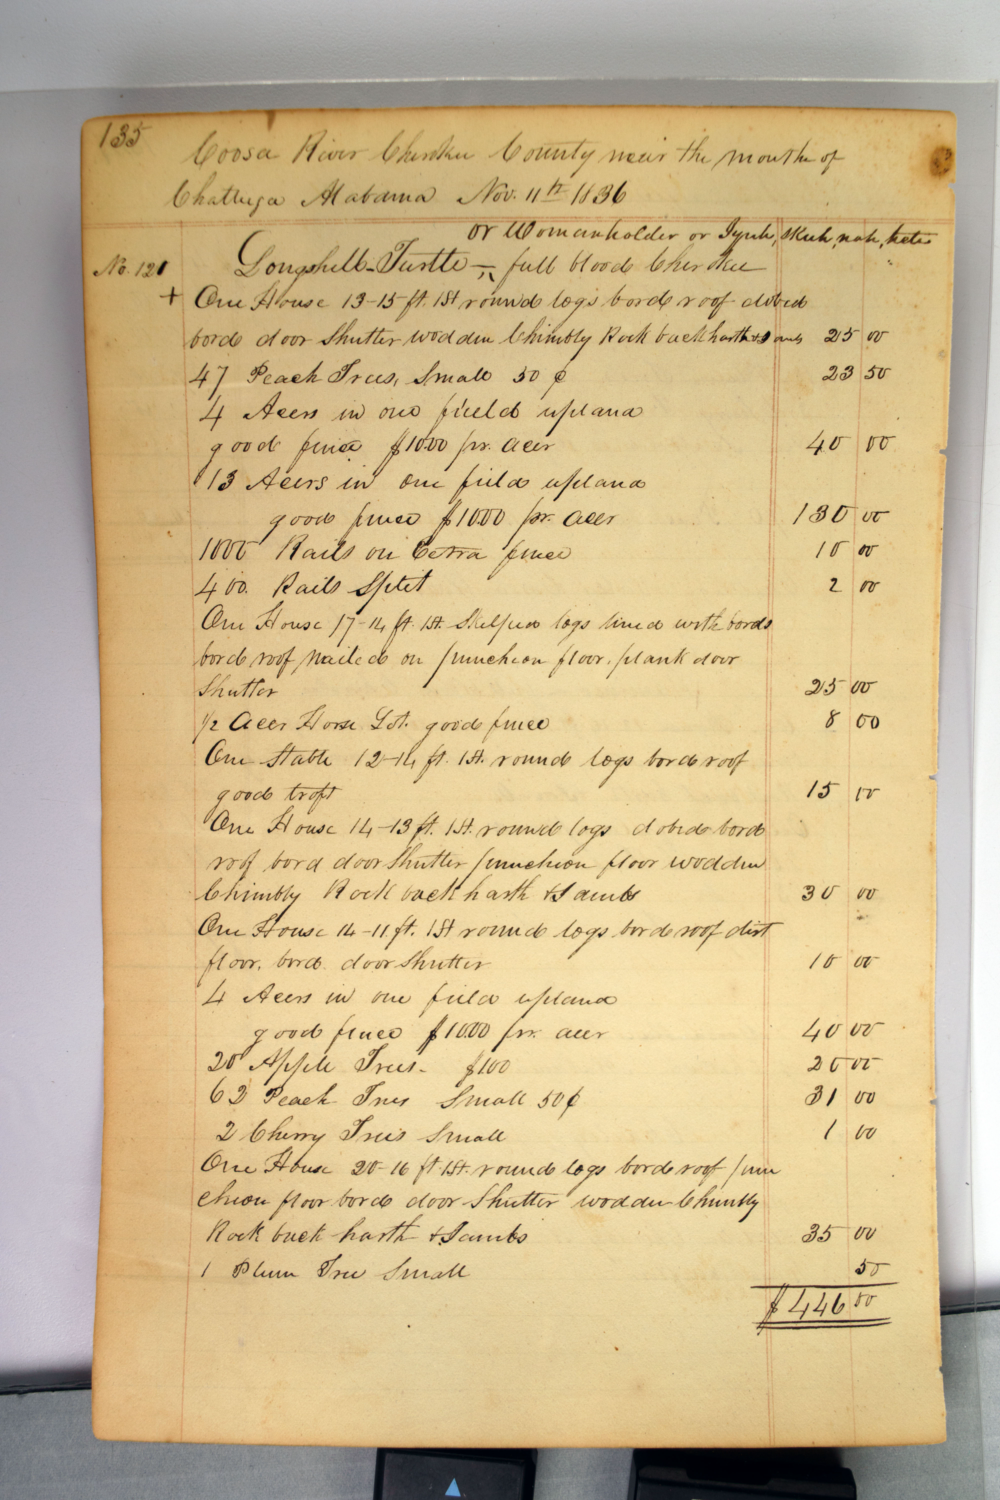 135
Coosa River Cherokee County near the mouth of
Chattuga Alabama Nov. 11th 1836
or Womanholder or Iyuh, skuh, nah, tete
No. 121 Longshell Turtle – full blood Cherokee
+ One House 13-15 ft. 1 St round logs bord roof dobed
bord door Shutter wodden Chimbly Rock back harth & Jambs 25 00
47 Peach Trees, Small 50 ¢ 23 50
4 Acers in one field upland
good fence $10.00 pr. acer 40 00
13 Acers in one field upland
good fence $10.00 pr. acer 130 00
1000 Rails on Extra fence 10 00
400. Rails Split 2 00
One House 17-14 ft. 1 St. Skelped logs lined with bords
bord roof nailed on puncheon floor. plank door
Shutter 25 00
1/2 Acer Horse Lot. good fence 8 00
One Stable 12-14 ft. 1 St. round logs bord roof
good troft 15 00
One House 14-13 ft. 1 St. round logs dobed bord
roof bord door Shutter puncheon floor wodden
Chimbly Rock back harth & Jambs 30 00
One House 14-11 ft. 1 St round logs bord roof dirt
floor. bord door Shutter 10 00
4 Acers in one field upland
good fence $10.00 pr. acer 40 00
20 Apple Trees - $1.00 20 00
62 Peach Trees Small 50 ¢ 31 00
2 Cherry Trees Small 1 00
One House 20-16 ft. 1 St. round logs bord roof pun
cheon floor bord door Shutter wodden Chimbly
Rock back harth & Jambs 35 00
1 Plum Tree Small 50
$ 446 00